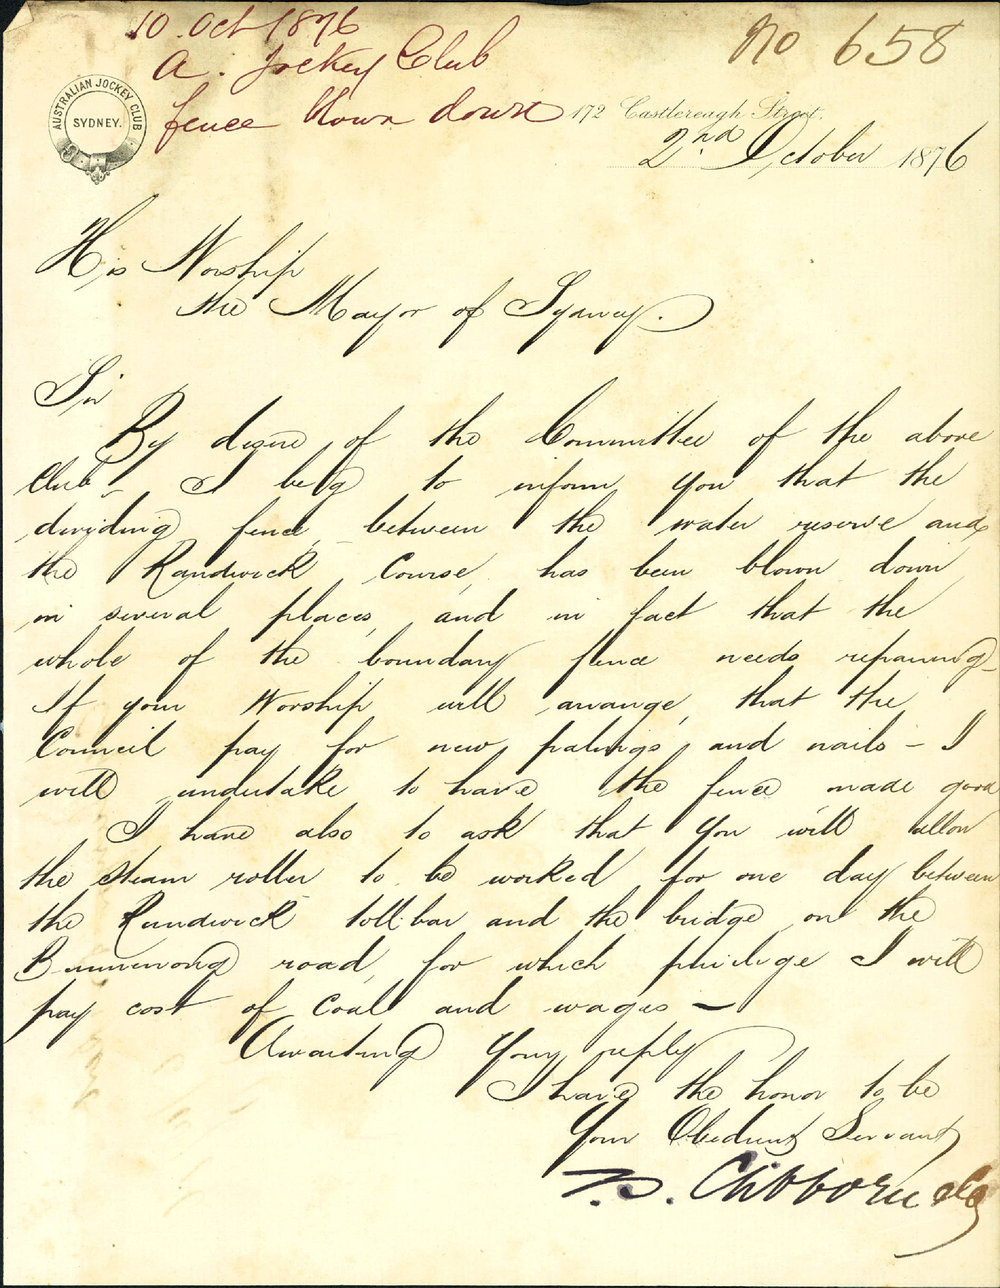 10. Oct 1876
No 658
A. Jockey Club
fence blown down
AUSTRALIAN JOCKEY CLUB
SYDNEY.
172 Castlereagh Street.
2nd October 1876
His Worship
the Mayor of Sydney.
Sir
By desire of the Committee of the above
Club - I beg to inform you that the
dividing fence between the water reserve and
the Randwick Course, has been blown down
in several places, and in fact that the
whole of the boundary fence needs repairing -
If your Worship will arrange, that the
Council pay for new palings, and nails - I
will undertake to have the fence made good
I have also to ask that you will allow
the steam roller to be worked for one day between
the Randwick toll bar and the bridge on the
Bunnerong road, for which privilege I will
pay cost of Coal and wages -
Awaiting your reply
I have the honor to be
Your Obedient Servant
T. S. Clibborn